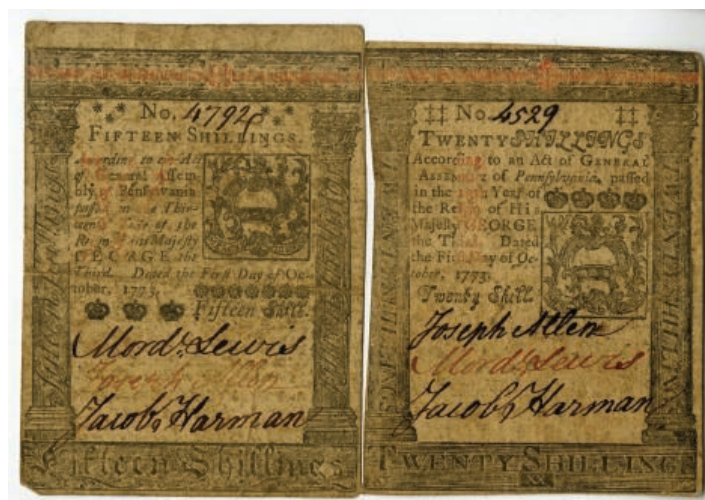 No. 4792
FIFTEEN SHILLINGS.
According to an Act
of General Assem-
bly of Pennsylvania
passed in the Thir-
teenth Year of the
Reign of his Majesty
GEORGE the
Third. Dated the First Day of Oc-
tober, 1773.
Fifteen Shill.
Mord. Lewis
Joseph Allen
Jacob Harman
Fifteen Shillings
Fifteen Shillings
No. 4529
TWENTY SHILLINGS
According to an Act of GENERAL
ASSEMBLY of Pennsylvania, passed
in the 13th Year of
the Reign of His
Majesty GEORGE
the Third. Dated
the First Day of Oc-
tober, 1773.
Twenty Shill.
Joseph Allen
Mord. Lewis
Jacob Harman
TWENTY SHILLINGS
TWENTY SHILLING
XX